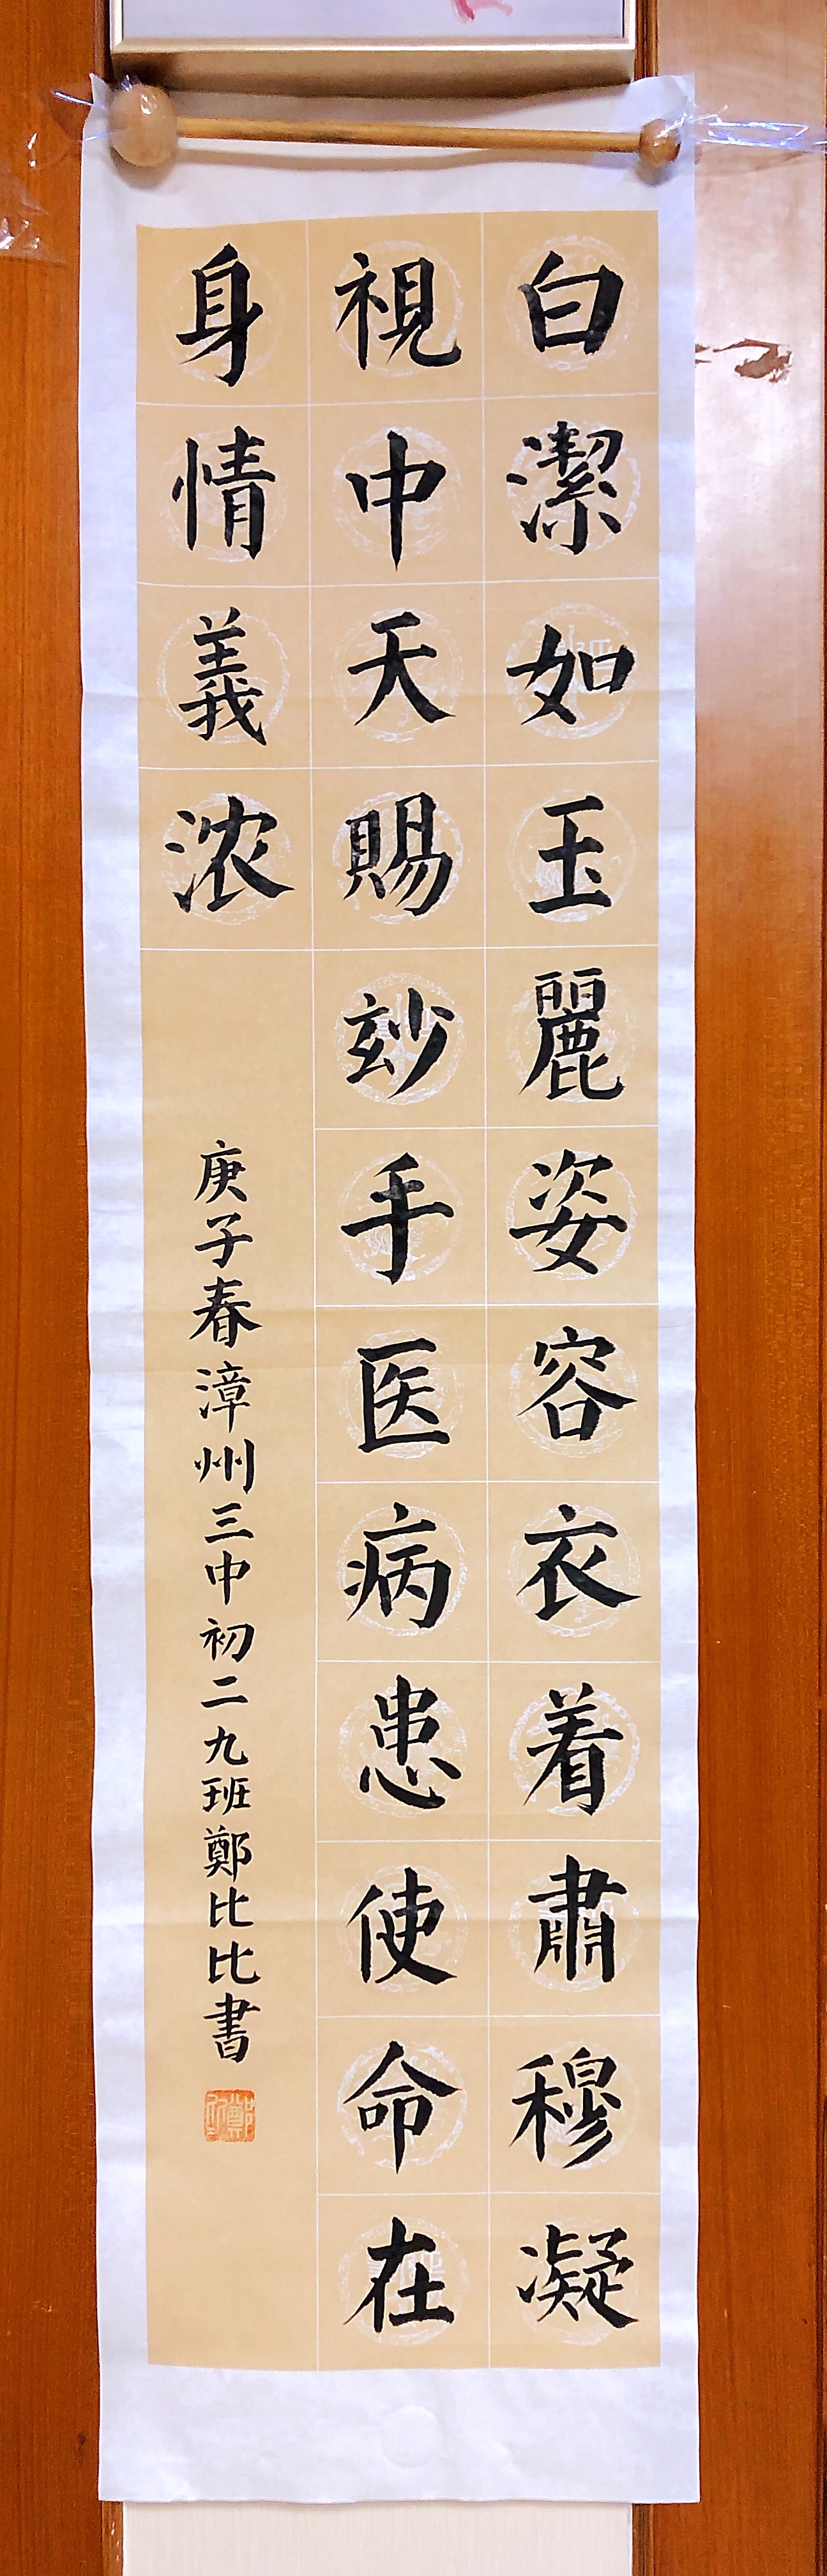 白潔如玉麗姿容衣着肅穆凝
視中天賜玅手医病患使命在
身情義浓
庚子春漳州三中初二九班鄭比比書